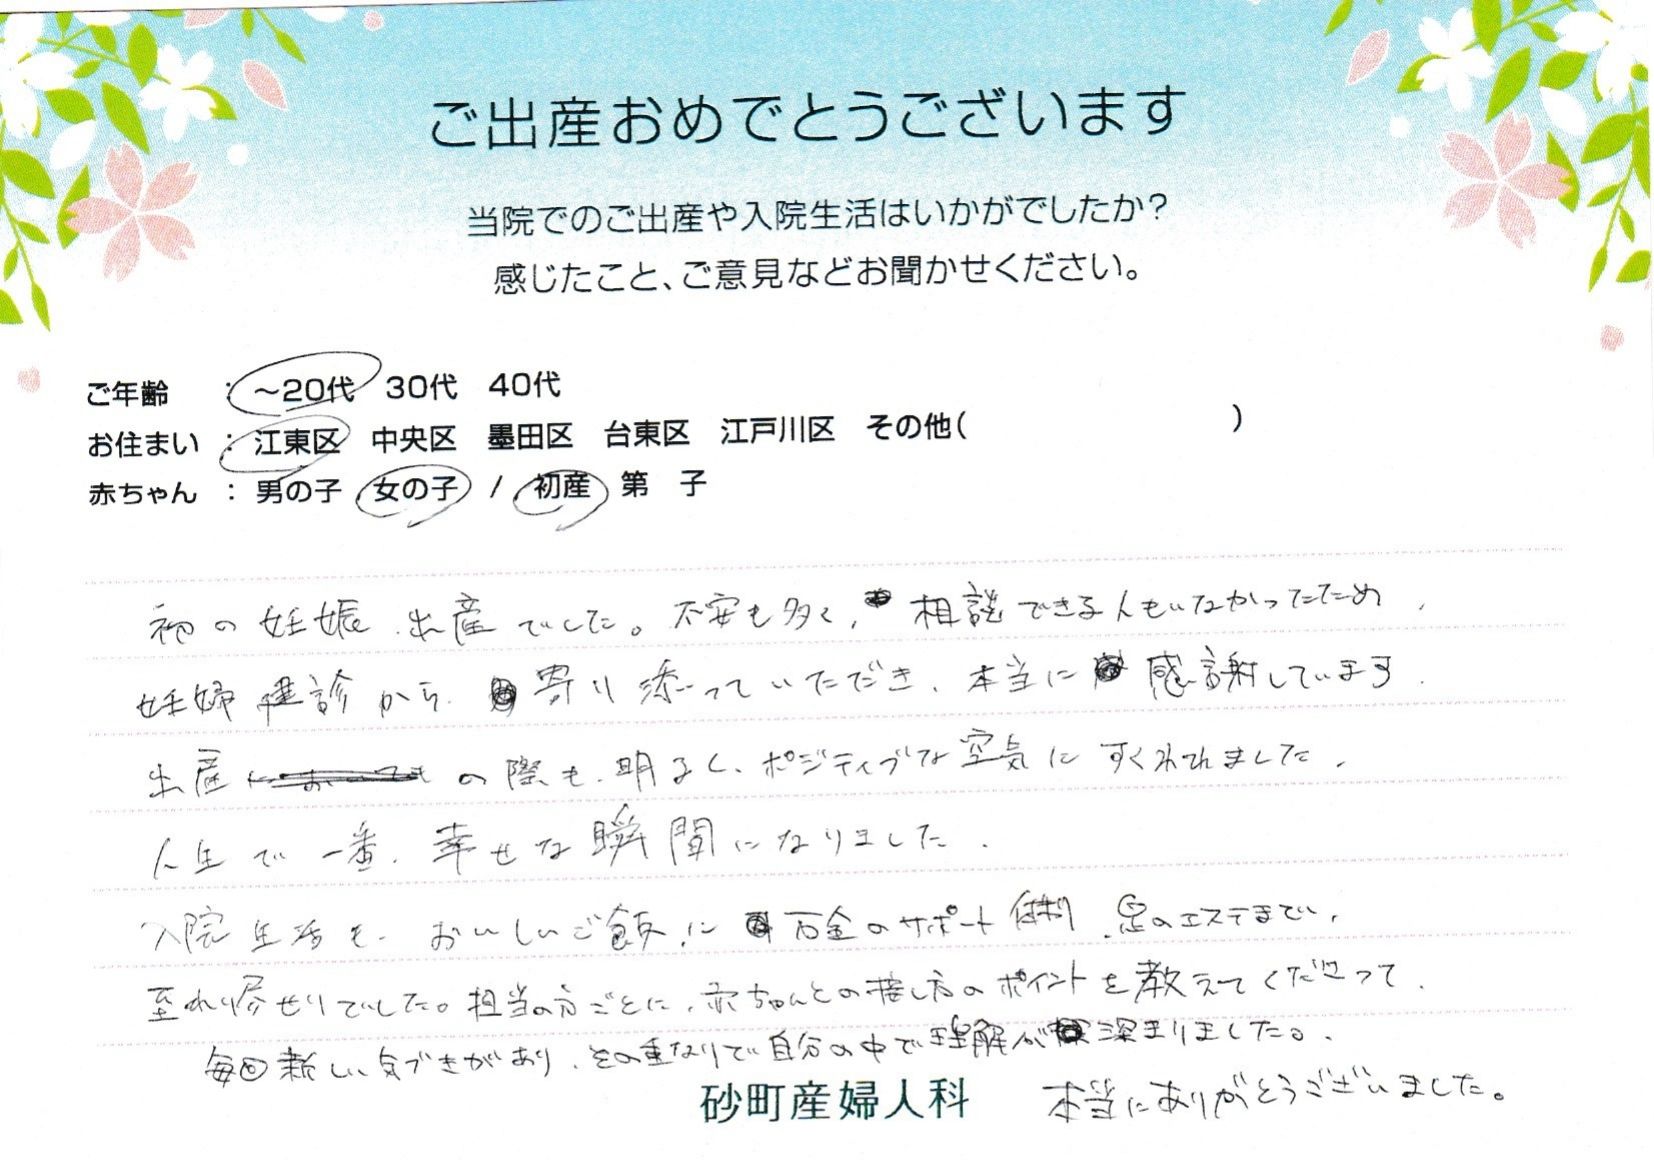 ご出産おめでとうございます
当院でのご出産や入院生活はいかがでしたか?
感じたこと、ご意見などお聞かせください。
ご年齢 : ~20代 30代 40代
お住まい : 江東区 中央区 墨田区 台東区 江戸川区 その他( )
赤ちゃん : 男の子 女の子 / 初産 第 子
初の妊娠、出産でした。不安も多く、相談できる人もいなかったため、
妊婦健診から、寄り添っていただき、本当に感謝しています。
出産の際も、明るく、ポジティブな空気にすくわれました。
人生で一番、幸せな瞬間になりました。
入院生活も、おいしいご飯に万全のサポート体制、足のエステまで、
至れり尽せりでした。担当の方ごとに、赤ちゃんとの接し方のポイントを教えてくださって、
毎回新しい気づきがあり、その重なりで自分の中で理解が深まりました。
砂町産婦人科 本当にありがとうございました。